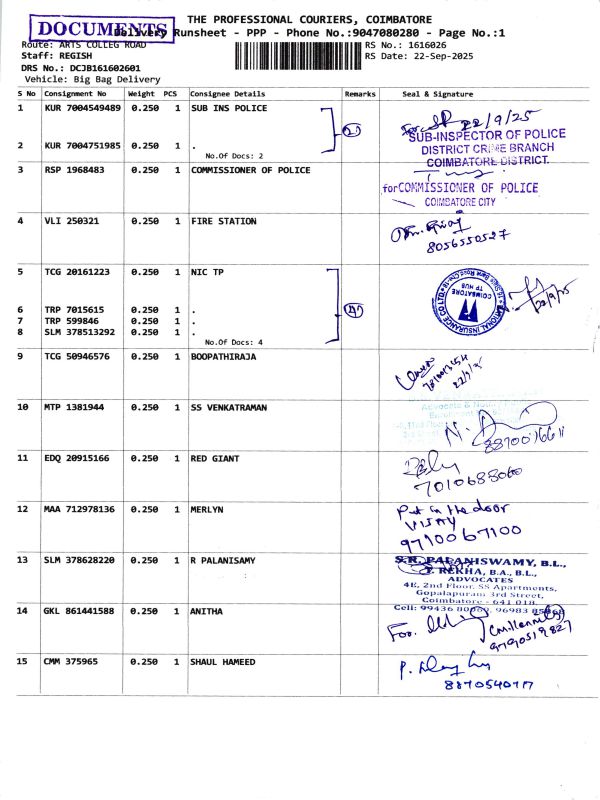 THE PROFESSIONAL COURIERS, COIMBATORE
DOCUMENTS
Delivery Runsheet - PPP - Phone No.:9047080280 - Page No.:1
Route: ARTS COLLEG ROAD
RS No.: 1616026
Staff: REGISH
RS Date: 22-Sep-2025
DRS No.: DCJB161602601
Vehicle: Big Bag Delivery
S No Consignment No Weight PCS Consignee Details Remarks Seal & Signature
1 KUR 7004549489 0.250 1 SUB INS POLICE
For 22/9/25
SUB-INSPECTOR OF POLICE
DISTRICT CRIME BRANCH
COIMBATORE DISTRICT.
2 KUR 7004751985 0.250 1 .
No.Of Docs: 2
3 RSP 1968483 0.250 1 COMMISSIONER OF POLICE
for COMMISSIONER OF POLICE
COIMBATORE CITY
4 VLI 250321 0.250 1 FIRE STATION
8056550527
5 TCG 20161223 0.250 1 NIC TP
NATIONAL INSURANCE CO LTD
COIMBATORE
TP HUB
22/9/25
6 TRP 7015615 0.250 1 .
7 TRP 599846 0.250 1 .
8 SLM 378513292 0.250 1 .
No.Of Docs: 4
9 TCG 50946576 0.250 1 BOOPATHIRAJA
10 MTP 1381944 0.250 1 SS VENKATRAMAN
Advocate & Notary
11 EDQ 20915166 0.250 1 RED GIANT
7010688060
12 MAA 712978136 0.250 1 MERLYN
Put in the door
VIJAY
9710067100
13 SLM 378628220 0.250 1 R PALANISAMY
S.R. PALANISWAMY, B.L.,
T. REKHA, B.A., B.L.,
ADVOCATES
4E, 2nd Floor, SS Apartments,
Gopalapuram 3rd Street,
Coimbatore - 641 018.
Cell: 99436 80069, 96983
14 GKL 861441588 0.250 1 ANITHA
For.
9790519827
15 CMM 375965 0.250 1 SHAUL HAMEED